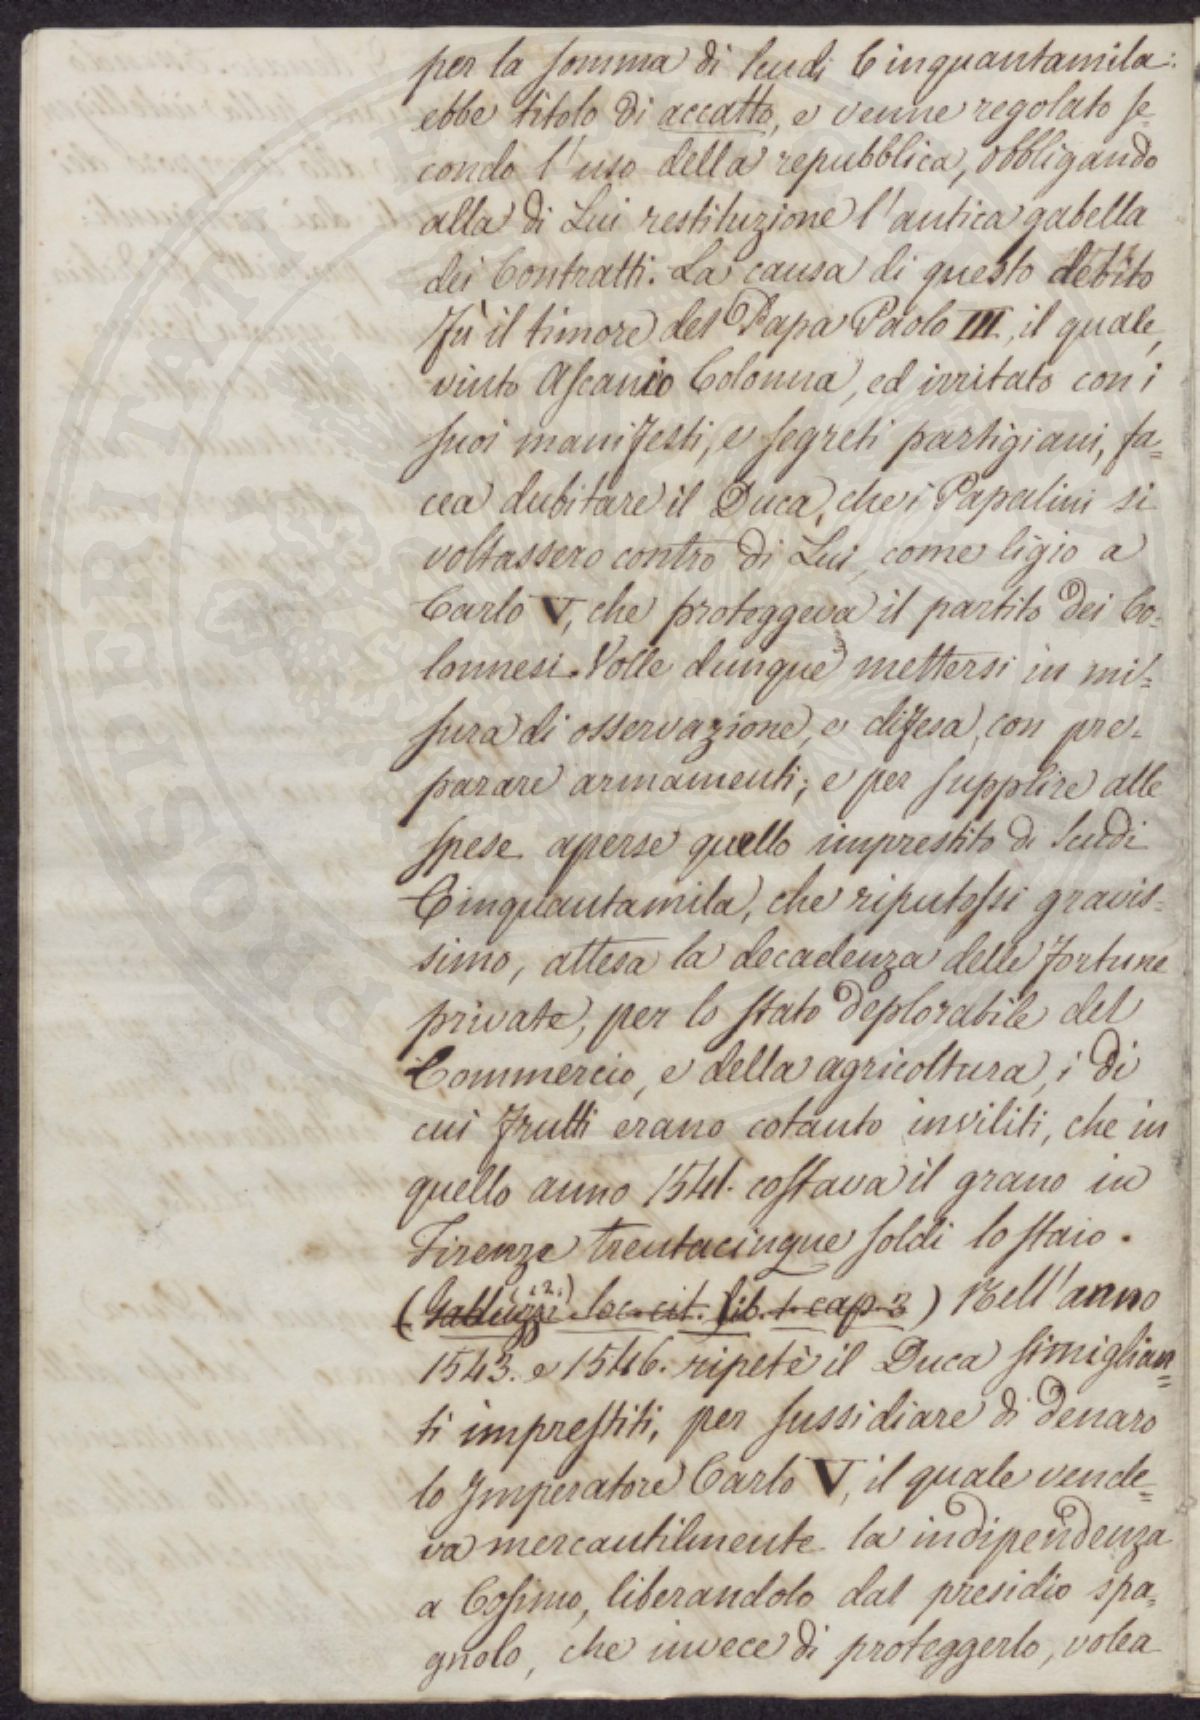 per la somma di Scudi Cinquantamila:
ebbe titolo di accatto, e venne regolato se=
condo l'uso della repubblica, obbligando
alla di Lui restituzione l'antica gabella
dei Contratti. La causa di questo debito
fù il timore del Papa Paolo III., il quale,
vinto Ascanio Colonna, ed irritato con i
suoi manifesti, e segreti partigiani, fa=
cea dubitare il Duca, che i Papalini si
voltassero contro di Lui, come ligio a
Carlo V, che proteggeva il partito dei Co=
lonnesi. Volle dunque mettersi in mi=
sura di osservazione, e difesa, con pre=
parare armamenti; e per supplire alle
spese aperse quello imprestito di Scudi
Cinquantamila, che riputossi gravis=
simo, attesa la decadenza delle fortune
private, per lo stato deplorabile del
Commercio, e della agricoltura, i di
cui frutti erano cotanto inviliti, che in
quello anno 1541. costava il grano in
Firenze trentacinque soldi lo staio.
(Galluzzi loc. cit. lib. 1. cap. 3) Nell'anno
1543. e 1546. ripetè il Duca simiglian=
ti imprestiti, per sussidiare di denaro
lo Imperatore Carlo V, il quale vende=
va mercantilmente la indipendenza
a Cosimo, liberandolo dal presidio spa=
gnolo, che invece di proteggerlo, volea
PROSPERITATI